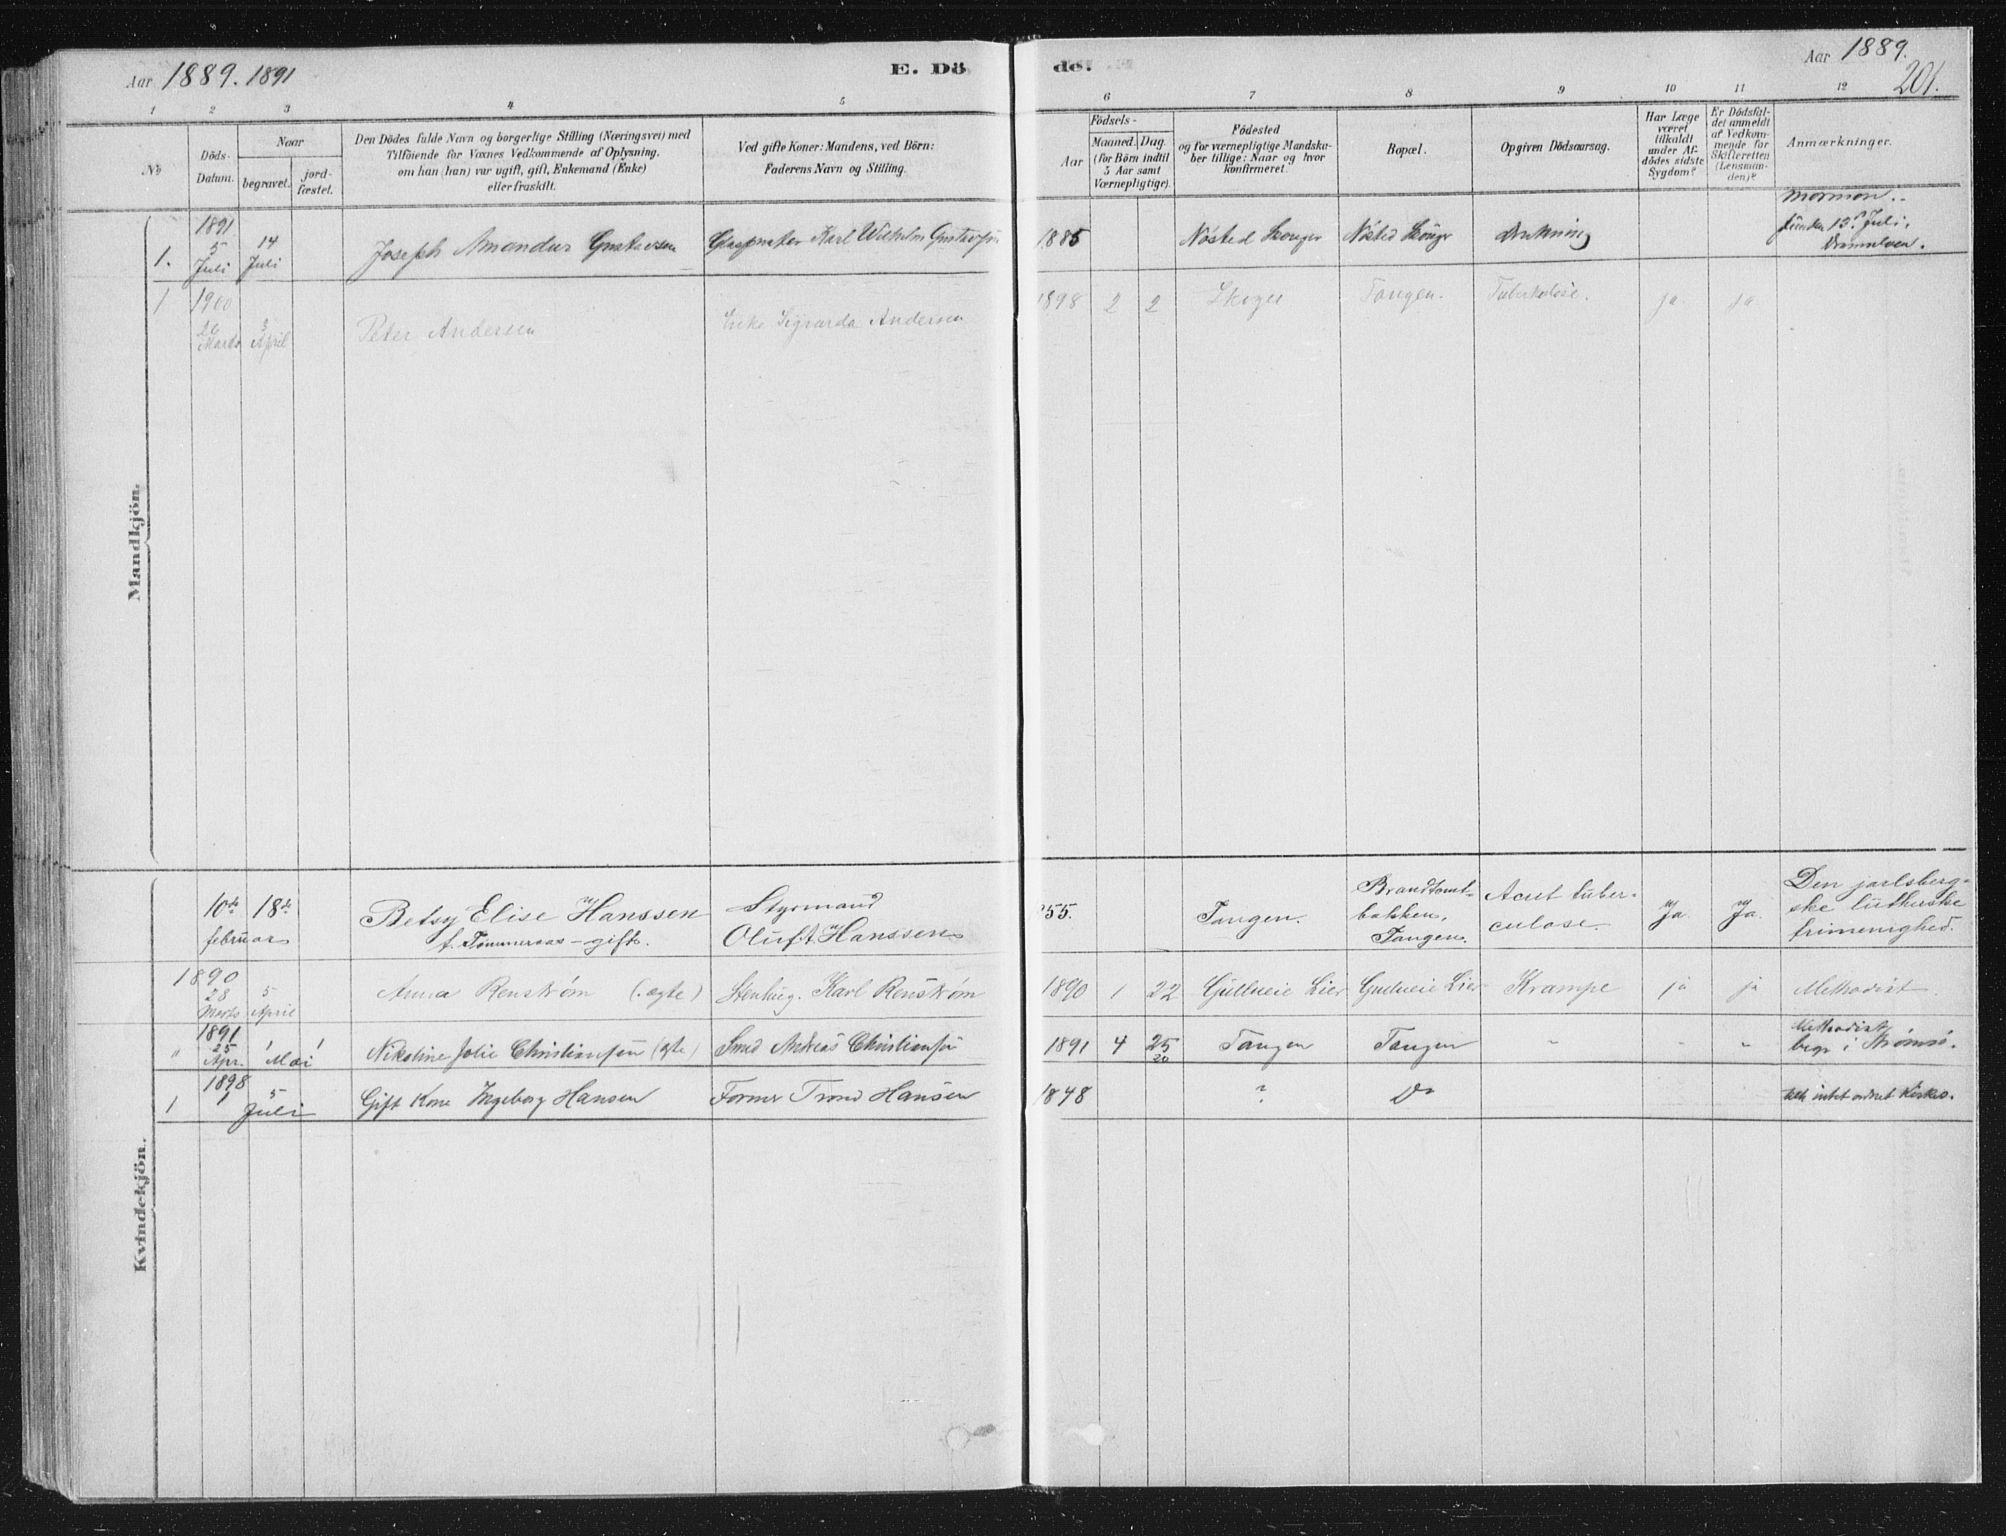 Aar 1889. 1891
E. Dö
de.
Aar 1889.
201.
1 2 3 4 5 6 7 8 9 10 11 12
No
Döds-
Datum.
Naar
begravet.
jord-
fæstet.
Den Dödes fulde Navn og borgerlige Stilling (Næringsvei) med
Tilföiende for Voxnes Vedkommende af Oplysning,
om han (hun) var ugift, gift, Enkemand (Enke)
eller fraskilt.
Ved gifte Koner: Mandens, ved Börn:
Faderens Navn og Stilling.
Födsels-
Aar
Maaned. Dag.
(for Börn indtil
5 Aar samt
Værnepligtige).
Födested
og for værnepligtige Mandska-
ber tillige: Naar og hvor
konfirmeret.
Bopæl.
Opgiven Dödsaarsag.
Har Læge
været
tilkaldt
under Af-
dödes sidste
Sygdom?
Er Dödsfal-
det anmeldt
af Vedkom-
mende for
Skifteretten
(Lensman-
den)?
Anmærkninger.
Mandkjön.
1. 1891 5 Juli 14 Juli Joseph Amandus Gustavsen Glasmater Karl Wilhelm Gustavsen 1885 Nøsted Skouger Nøsted Skouger Drukning Mormon. funden 13de Juli, Dramselven.
1 1900 26 Marts 3 April Peter Andersen Enke Sigvarda Andersen 1898 2 2 Skoger Tangen. Tuberkulose. ja ja
Kvindekjön.
10de februar 18de Betsy Elise Hanssen f. Tømmeraas - gift. Styrmand Oluf T. Hanssen 55. Tangen. Brandtomt-
bakken,
Tangen. Acut tuber-
culose. Ja. Ja. Den jarlsberg-
ske lutherske
frimenighed.
1890 28 Marts 5 April Anna Renstrøm (.ægte) Stenhug. Karl Renstrøm 1890 1 22 Gullueie Lier Gullueie Lier Krampe ja ja Methodist
" 1891 25 Apr. 1 Mai Nikoline Jolie Christiansen (ægte) Smed Andreas Christiansen 1891 4 25 20 Tangen Tangen " " " Methodist
begr i Strømsø.
1 1898 1 5 Juli Gift Kone Ingeborg Hansen Former Trond Hansen 1848 ? Do intet ordnet Kirkes.